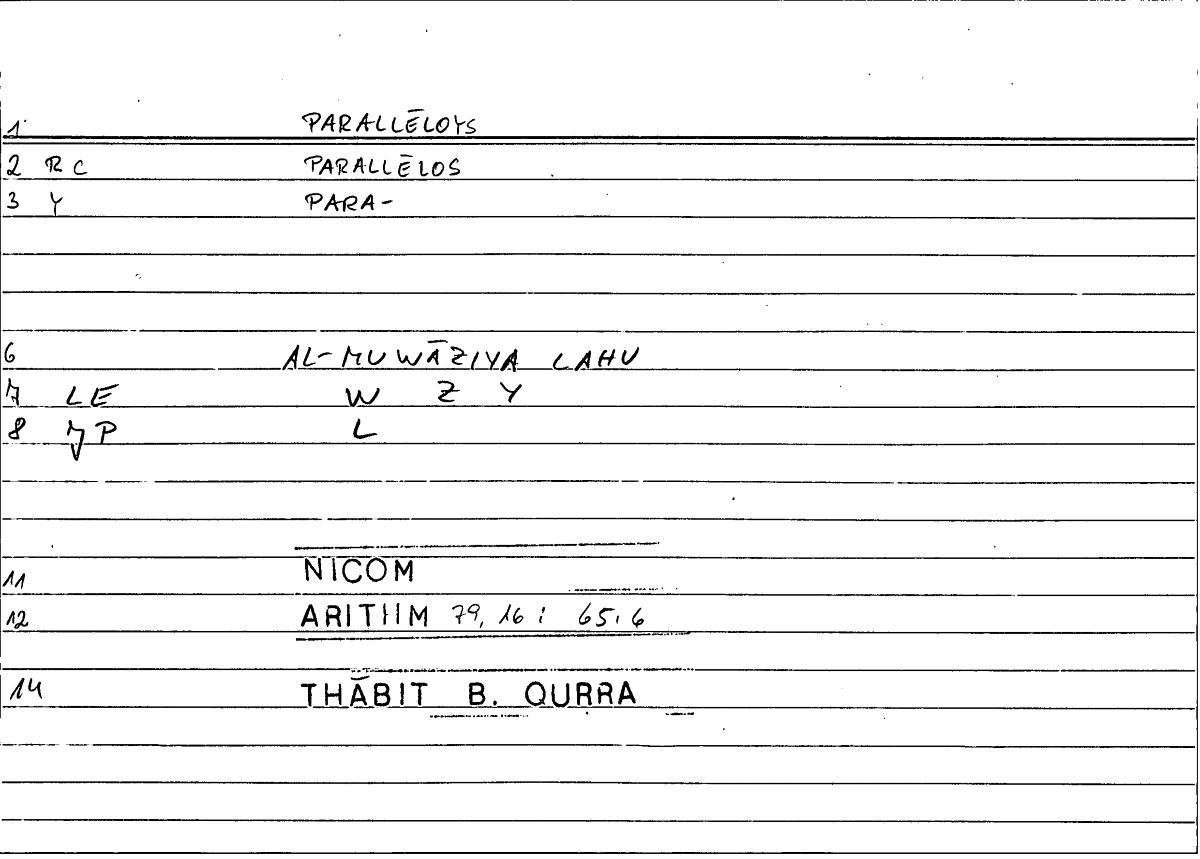 1 PARALLĒLOYS
2 RC PARALLĒLOS
3 Y PARA-
6 AL-MUWĀZIYA LAHU
7 LE W Z Y
8 JP L
11 NICOM
12 ARITIIM 79, 16 : 65.6
14 THĀBIT B. QURRA